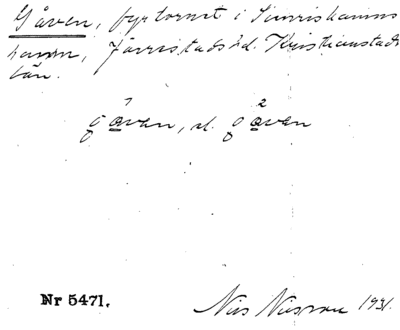 Gåven, fyrtornet i Simrishamns
hamn, Järrestads hd. Kristianstads
län.
gåven, el. gåven
Nr 5471.
Nils Nilsson 1931.